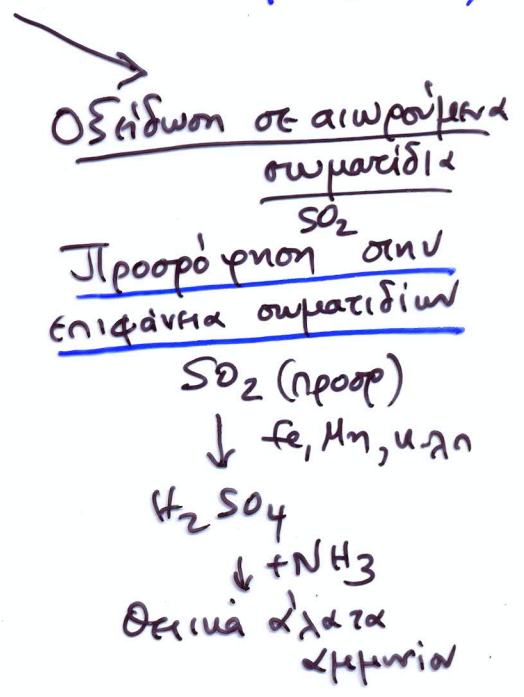 Οξείδωση σε αιωρούμενα
σωματίδια
SO2
Προσρόφηση στην
επιφάνεια σωματιδίων
SO2 (προσρ)
↓ Fe, Mn, κ.λπ
H2SO4
↓ +NH3
Θειικά άλατα
αμμωνίου